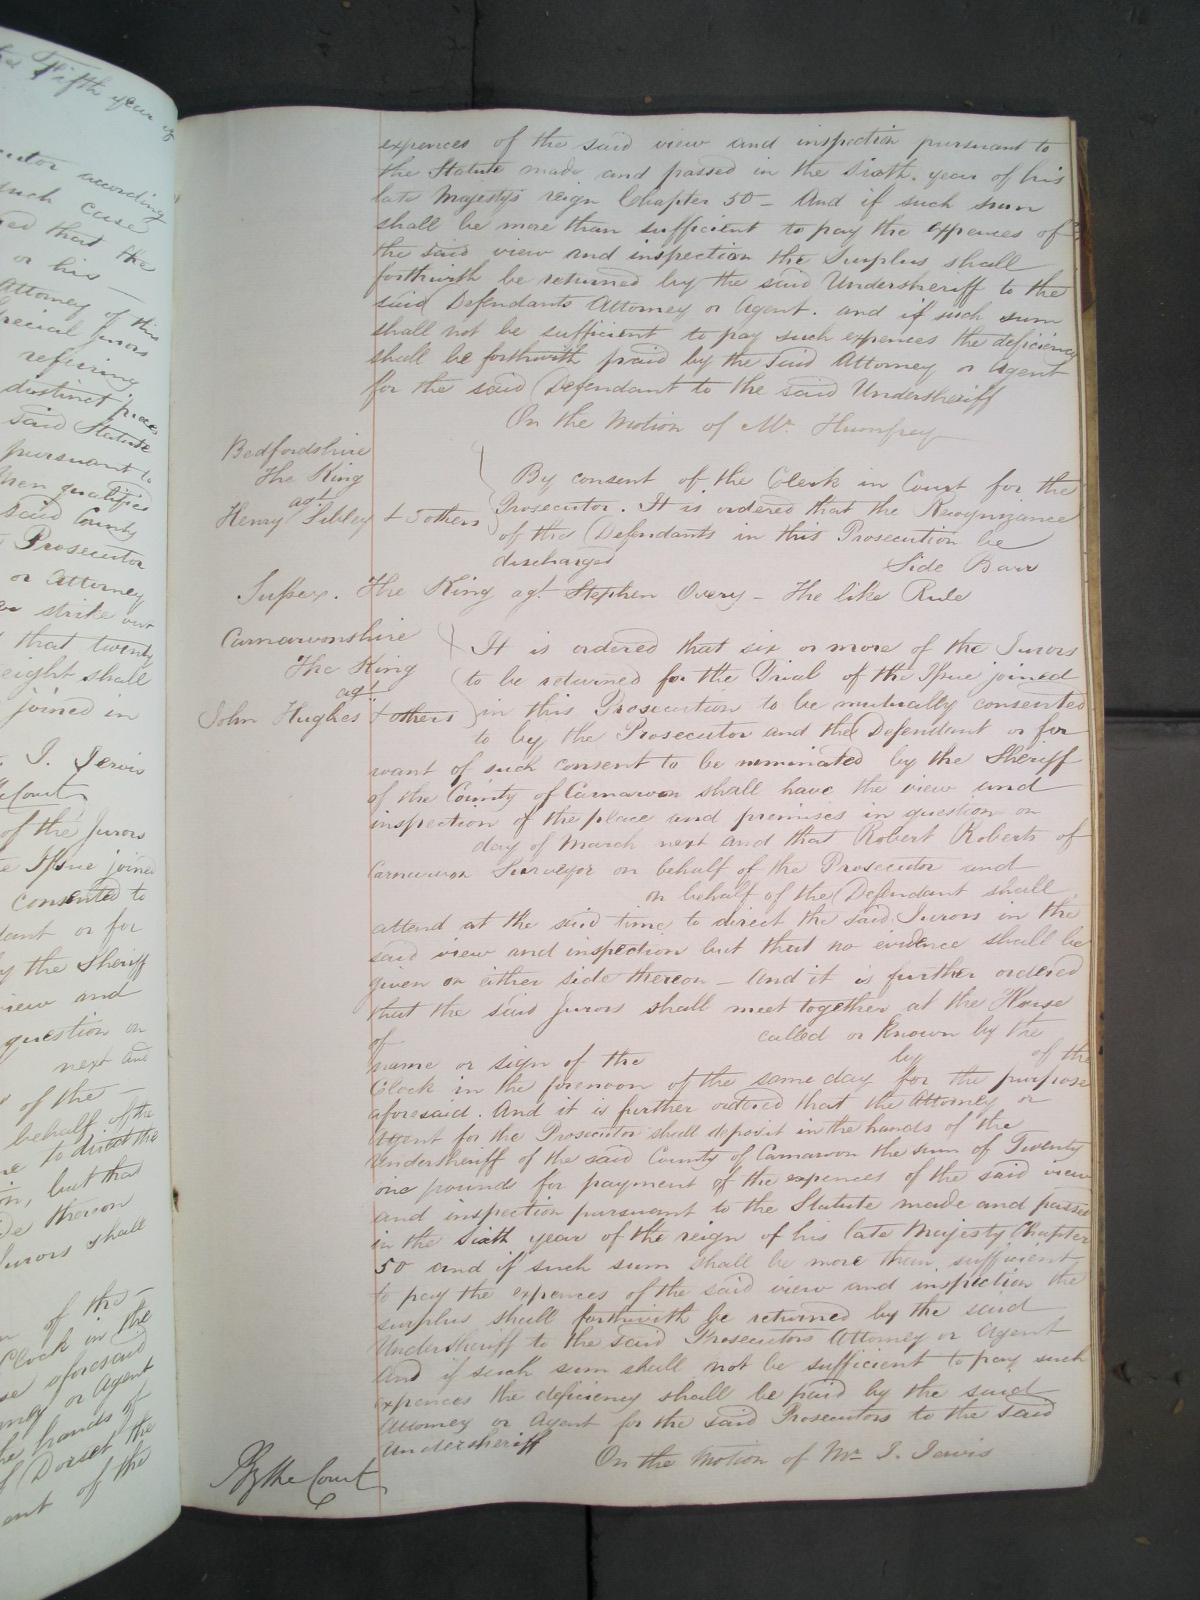 Fifth year of
according
such case
ed that the
or his —
Attorney of this
Special Jurors
refiering
distinct
said Statute
pursuant to
qualified
said County
Prosecutor
or Attorney
strike out
that twenty
eight shall
joined in
I. Jervis
Court
of the Jurors
Issue joined
consented to
dant or for
by the Sheriff
view and
question on
next and
of the —
behalf of the
to direct the
on, but that
thereon
Jurors shall
of the —
Clock in the
aforesaid
or Agent
the hands of
of Dorset the
of the
expences of the said view and inspection pursuant to
the Statute made and passed in the Sixth year of his
late Majestys reign Chapter 50 – And if such sum
shall be more than sufficient to pay the expences of
the said view and inspection the Surplus shall
forthwith be returned by the said Undersheriff to the
said Defendants Attorney or Agent. and if such sum
shall not be sufficient to pay such expences the deficiency
shall be forthwith paid by the said Attorney or Agent
for the said Defendant to the said Undersheriff
On the Motion of Mr. Humfrey
Bedfordshire
The King
agt
Henry Sibley & 3 others
By consent of the Clerk in Court for the
Prosecutor. It is ordered that the Recognizance
of the Defendants in this Prosecution be
discharged Side Barr
Sussex. The King agt Stephen Overy – The like Rule
Carnarvonshire
The King
agt
John Hughes & others
It is ordered that six or more of the Jurors
to be returned for the Trial of the Issue joined
in this Prosecution to be mutually consented
to by the Prosecutor and the Defendant or for
want of such consent to be nominated by the Sheriff
of the County of Carnarvon shall have the view and
inspection of the place and premises in question on
day of March next and that Robert Roberts of
Carnarvon Surveyor on behalf of the Prosecutor and
on behalf of the Defendant shall
attend at the said time to direct the said Jurors in the
said view and inspection but that no evidence shall be
given on either side thereon – and it is further ordered
that the said Jurors shall meet together at the House
of called or known by the
name or sign of the by of the
Clock in the forenoon of the same day for the purpose
aforesaid. And it is further ordered that the Attorney or
Agent for the Prosecutor shall deposit in the hands of the
Undersheriff of the said County of Carnarvon the sum of Twenty
one pounds for payment of the expences of the said view
and inspection pursuant to the Statute made and passed
in the Sixth year of the reign of his late Majesty Chapter
50 and if such sum shall be more than sufficient
to pay the expences of the said view and inspection the
surplus shall forthwith be returned by the said
Undersheriff to the said Prosecutors Attorney or Agent
And if such sum shall not be sufficient to pay such
expences the deficiency shall be paid by the said
Attorney or Agent for the said Prosecutors to the said
Undersheriff
On the Motion of Mr. I. Jervis
By the Court